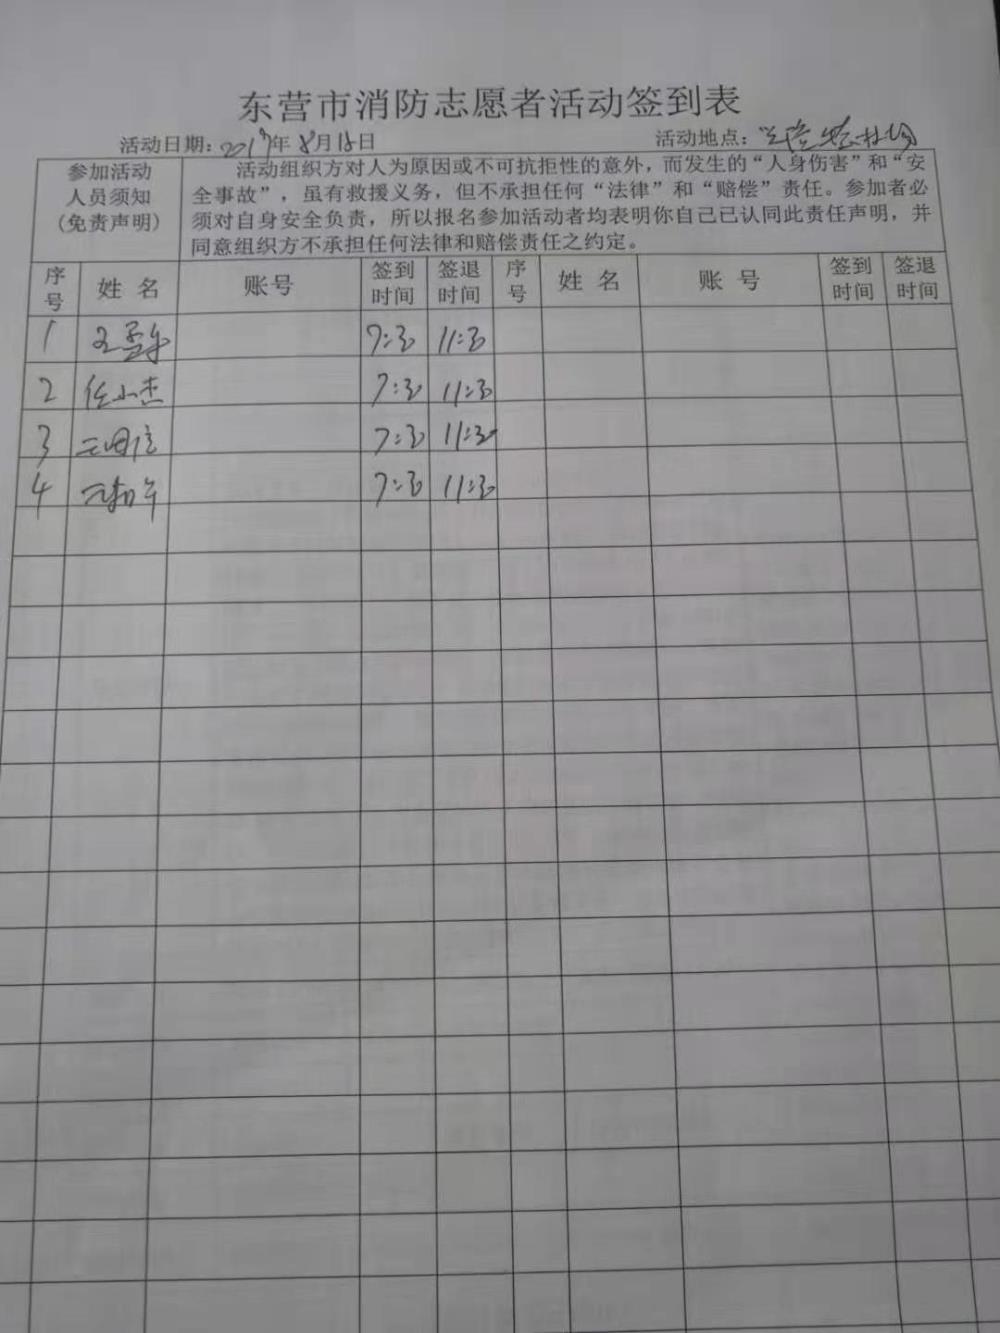 东营市消防志愿者活动签到表
活动日期：2019年8月18日 活动地点：
参加活动
人员须知
(免责声明)
活动组织方对人为原因或不可抗拒性的意外，而发生的“人身伤害”和“安
全事故”，虽有救援义务，但不承担任何“法律”和“赔偿”责任。参加者必
须对自身安全负责，所以报名参加活动者均表明你自己已认同此责任声明，并
同意组织方不承担任何法律和赔偿责任之约定。
序号 姓名 账号 签到时间 签退时间 序号 姓名 账号 签到时间 签退时间
1 7:30 11:30
2 任小杰 7:30 11:30
3 7:30 11:30
4 7:30 11:30